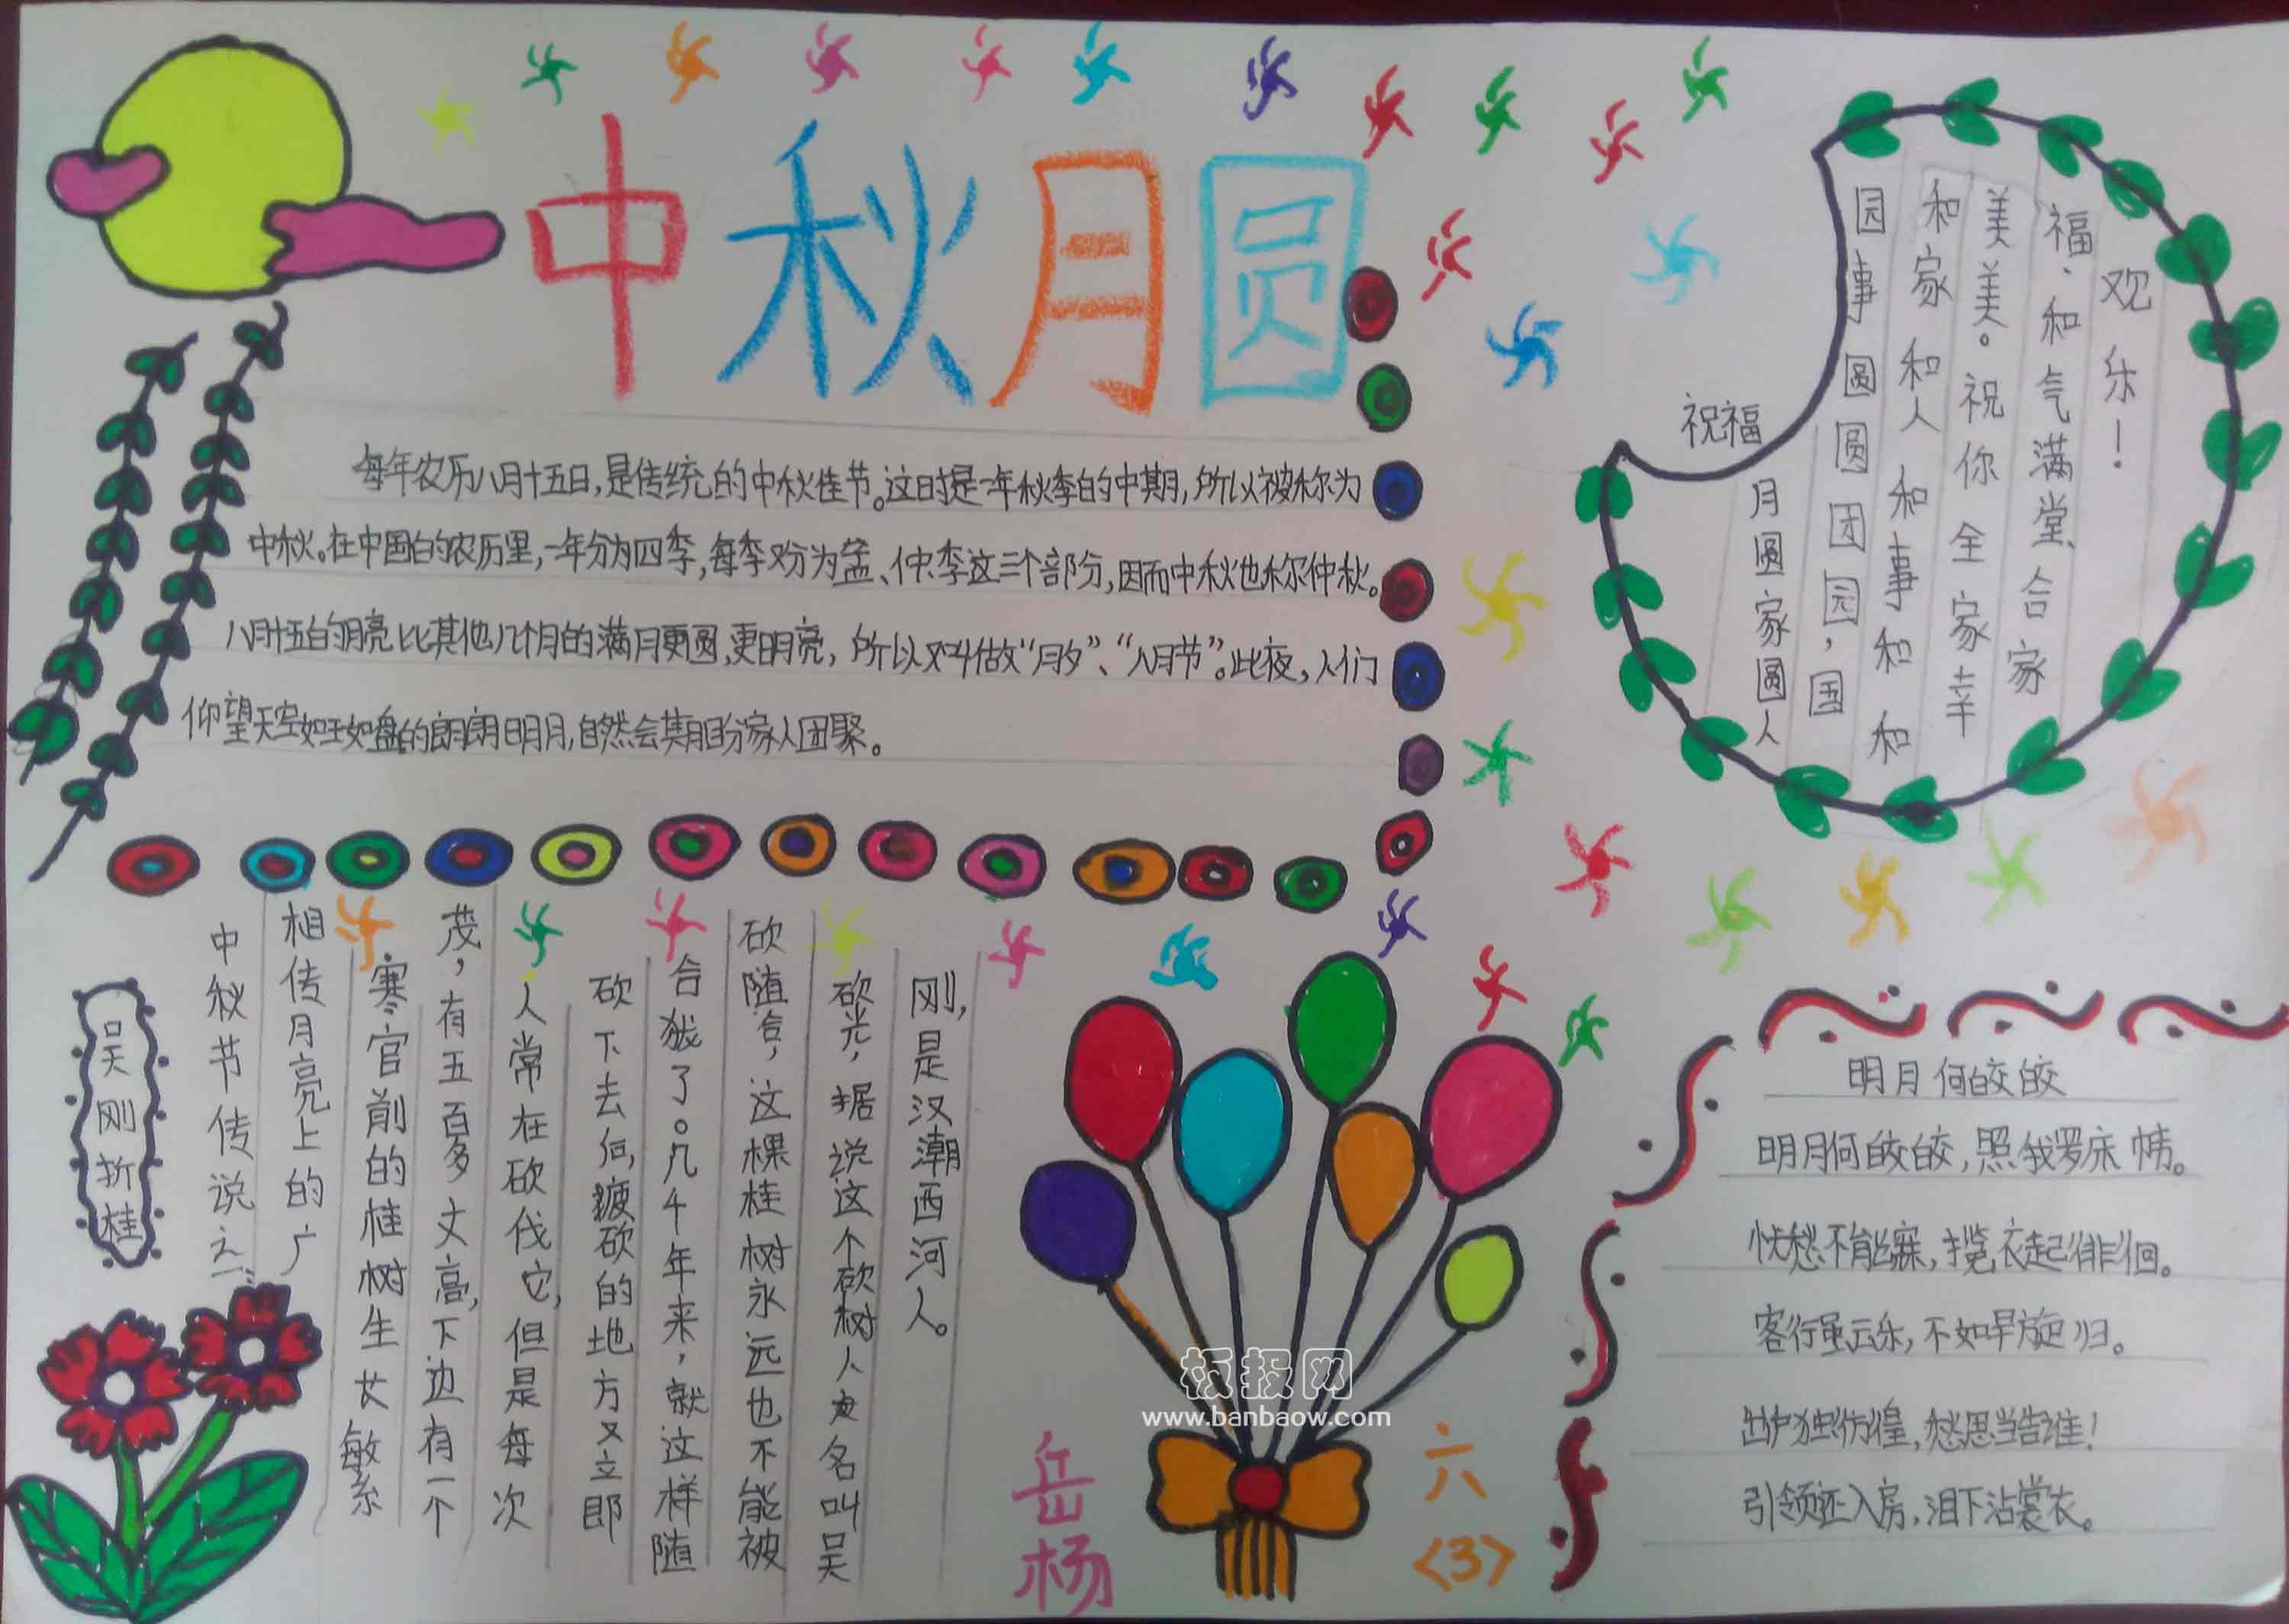 中秋月圆
每年农历八月十五日,是传统的中秋佳节。这时是一年秋季的中期,所以被称为
中秋。在中国的农历里,一年分为四季,每季又分为孟、仲、季这三个部分,因而中秋也称仲秋。
八月十五的月亮比其他几个月的满月更圆,更明亮,所以又叫做“月夕”、“八月节”。此夜,人们
仰望天空如玉如盘的朗朗明月,自然会期盼家人团聚。
祝福
月圆家圆人
园事圆圆团园,国
和家和人和事和和
美美。祝你全家幸
福、和气满堂、合家
欢乐!
吴刚折桂
中秋节传说之一:
相传月亮上的广
寒宫前的桂树生女敏系
茂,有五百多丈高,下边有一个
人常在砍伐它,但是每次
砍下去后,被砍的地方又立即
合拢了。几千年来,就这样随
砍随合,这棵桂树永远也不能被
砍光,据说这个砍树人名叫吴
刚,是汉潮西河人。
明月何皎皎
明月何皎皎,照我罗床帏。
忧愁不能寐,揽衣起徘徊。
客行虽云乐,不如早旋归。
出户独彷徨,愁思当告谁!
引领还入房,泪下沾裳衣。
岳杨
六<3>
板报网
www.banbaow.com